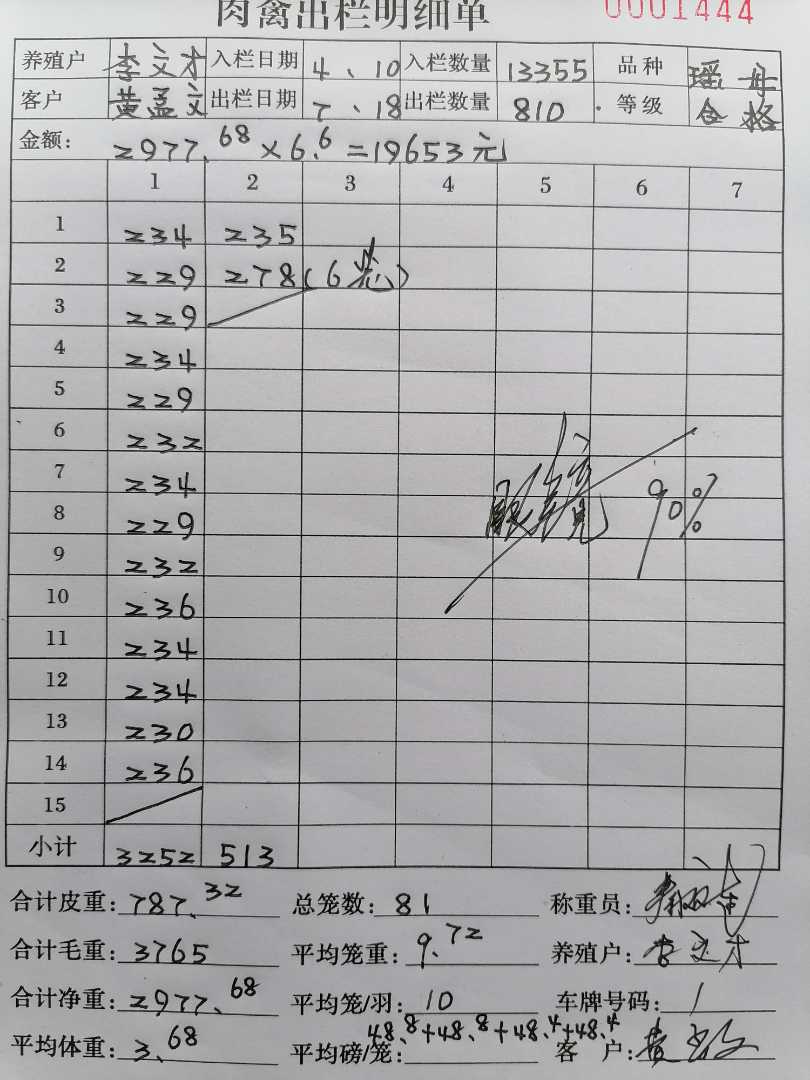 肉禽出栏明细单 0001444
养殖户 李文才 入栏日期 4、10 入栏数量 13355 品种 瑶丹
客户 黄孟文 出栏日期 7、18 出栏数量 810 等级 合格
金额: 2977.68×6.6=19653元
1 2 3 4 5 6 7
1 234 235
2 229 278(6笼)
3 229
4 234
5 229
6 232
7 234
8 229 90%
9 232
10 236
11 234
12 234
13 230
14 236
15
小计 3252 513
合计皮重: 787.32 总笼数: 81 称重员:
合计毛重: 3765 平均笼重: 9.72 养殖户: 李文才
合计净重: 2977.68 平均笼/羽: 10 车牌号码: 1
平均体重: 3.68 平均磅/笼: 48.8+48.8+48.4+48.4 客户: